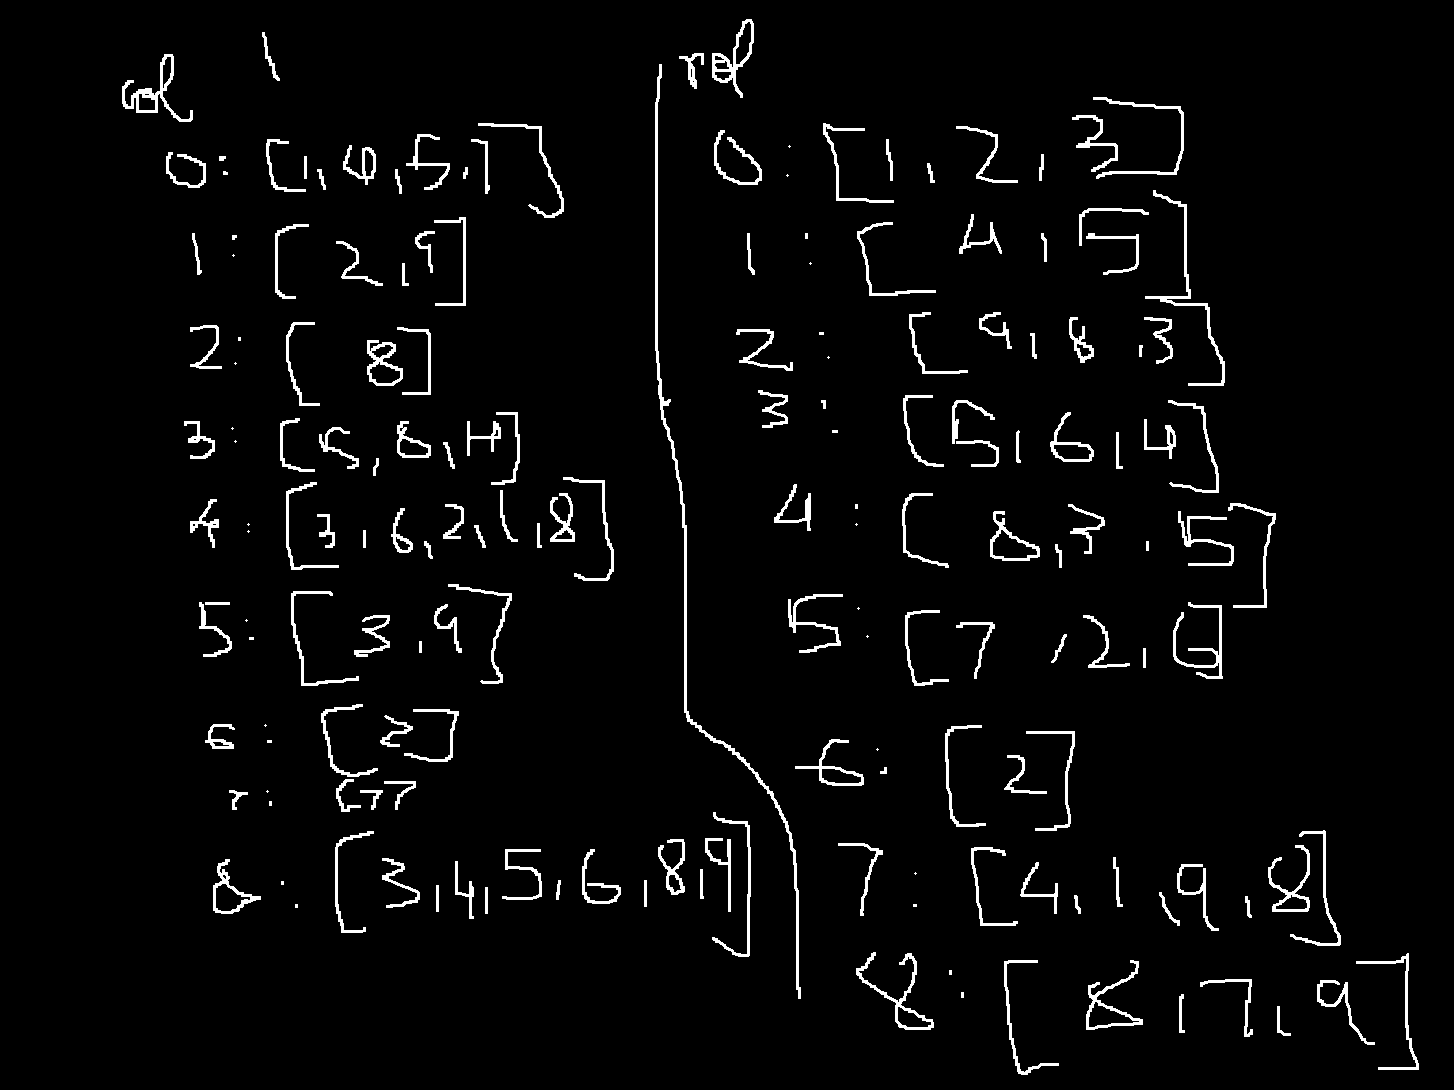 col
0: [1, 4, 5, 7]
1: [2, 9]
2: [8]
3: [5, 8, 4]
4: [3, 6, 2, 1, 8]
5: [3, 9]
6: [2]
7: [7]
8: [3, 4, 5, 6, 8, 9]
rol
0: [1, 2, 3]
1: [4, 5]
2: [9, 8, 3]
3: [5, 6, 4]
4: [8, 3, 5]
5: [7, 2, 6]
6: [2]
7: [4, 1, 9, 8]
8: [8, 7, 9]